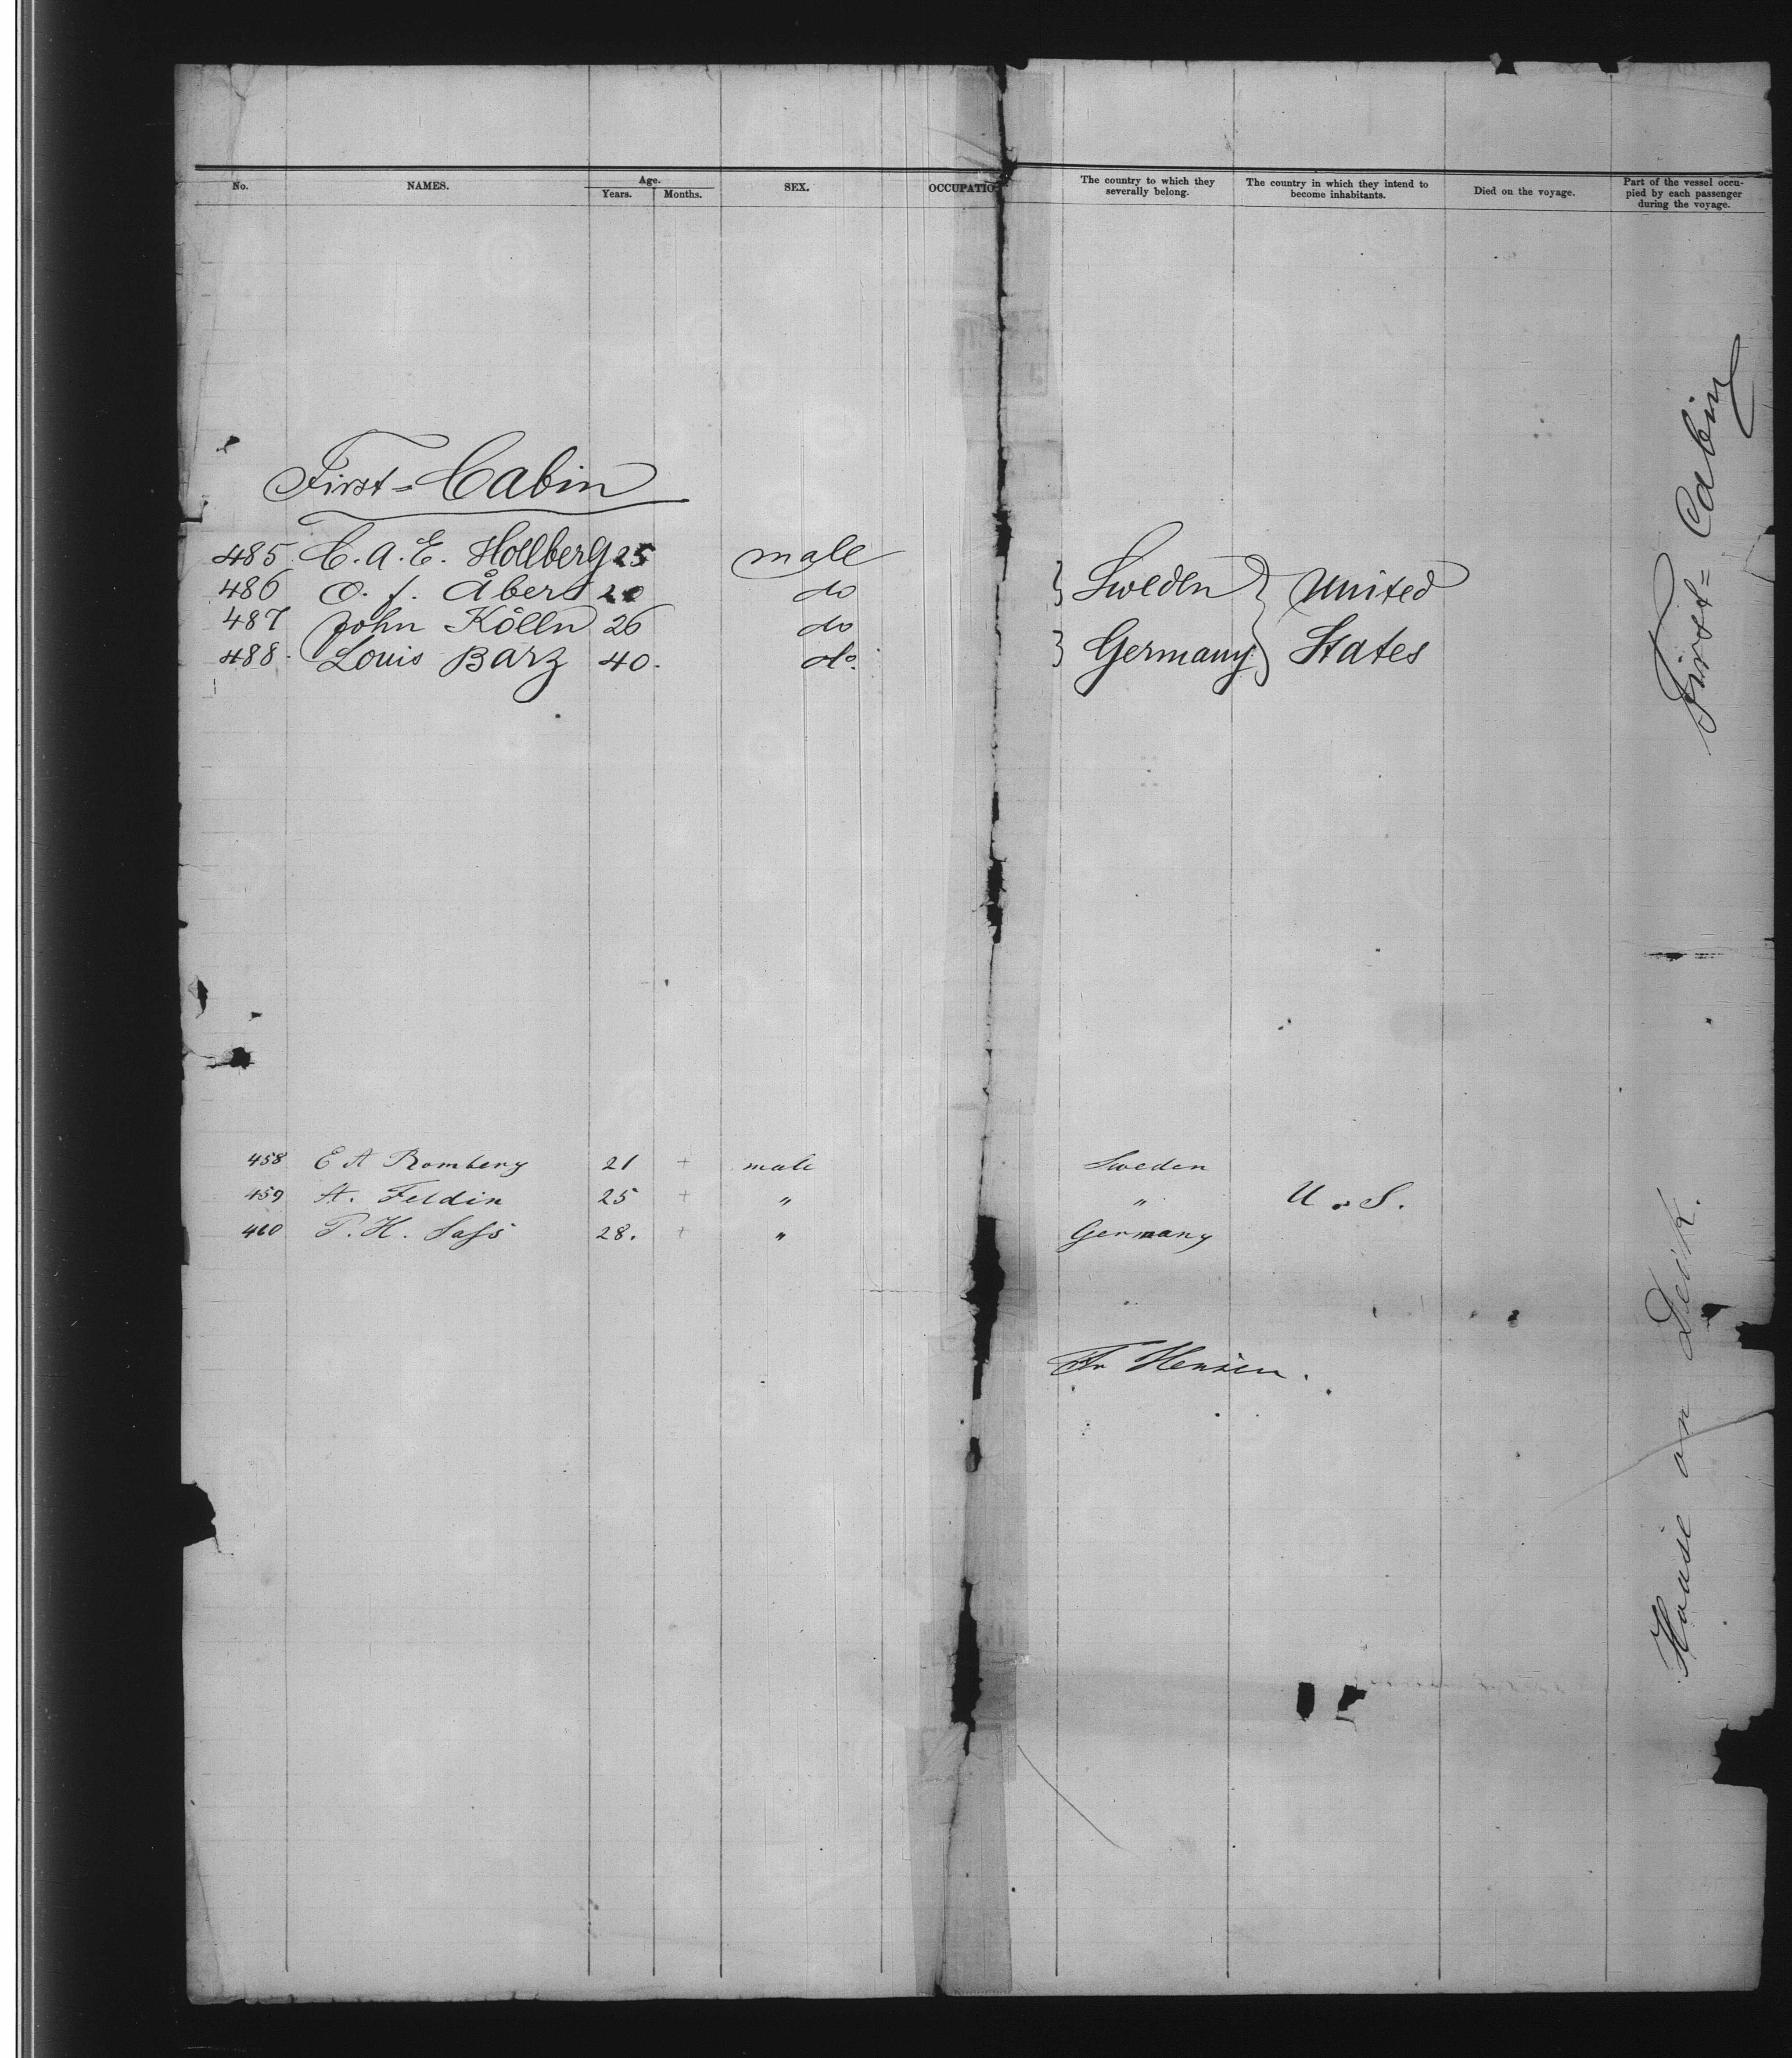 No. NAMES. Age. Years. Months. SEX. OCCUPATIO The country to which they severally belong. The country in which they intend to become inhabitants. Died on the voyage. Part of the vessel occu-pied by each passenger during the voyage.
First=Cabin
485. C. A. E. Hollberg 25 male
486 O. J. Åberg 20 do } Sweden } United
487 John Kölln 26 do
488. Louis Barz 40. do. } Germany } States
First=Cabin
458 E A Romberg 21 + male Sweden
459 A. Feldin 25 + " " U.S.
460 P. H. Sass 28. + " Germany
Fr Hensen.
House on Deck.